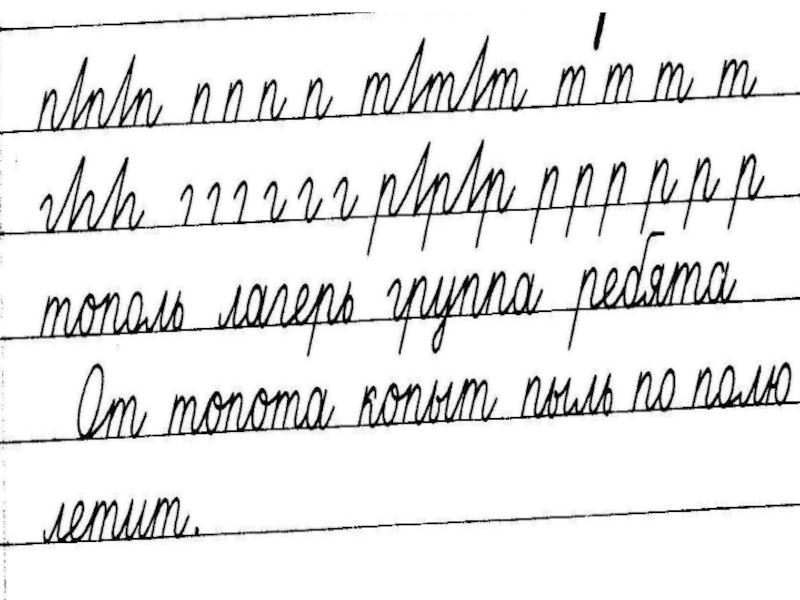 пlпlп п п п п тlтlт т т т т
гhh г г г г г г рlрlр р р р р р р
тополь лагерь группа ребята
От топота копыт пыль по полю
летит.